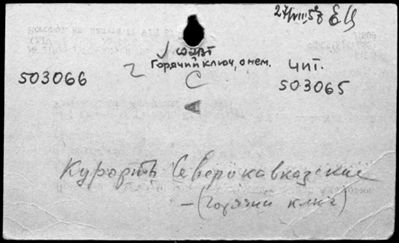 27/VIII.58 ЕЦ
Горячий ключ, о нем.
чит.
503066
2
С
503065
А
Курорты Северокавказские
– (горячий ключ)